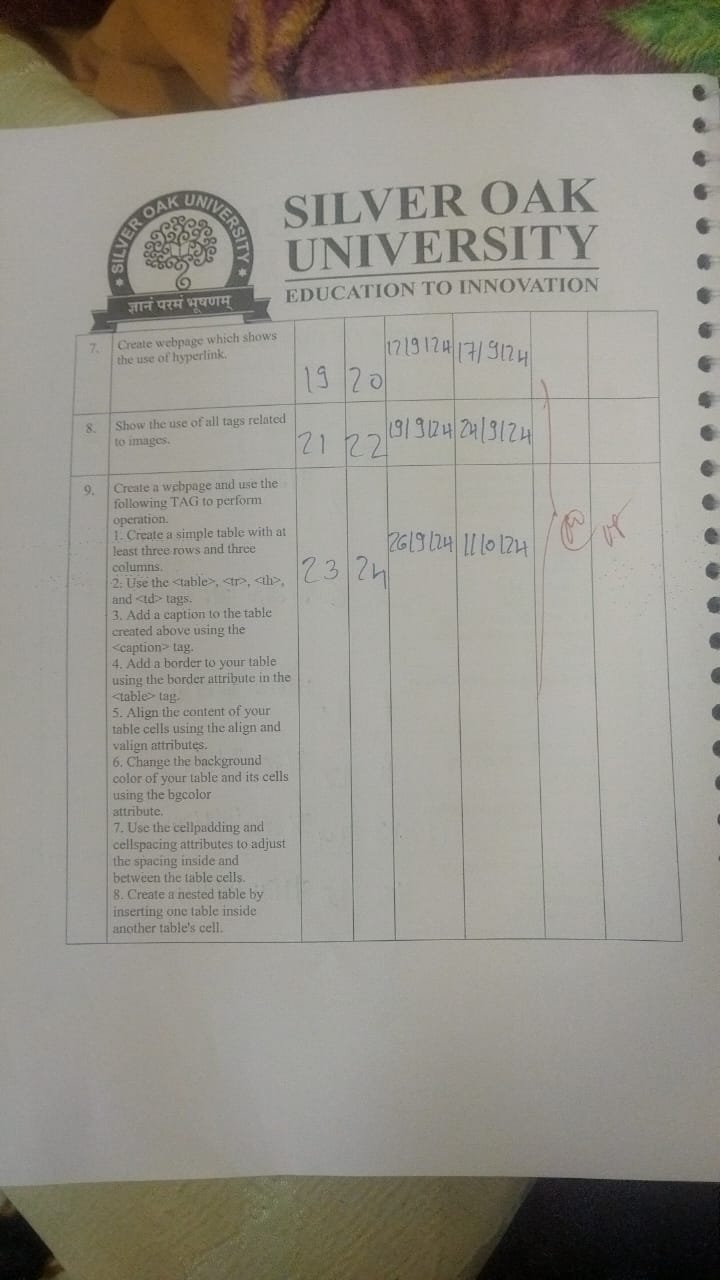 SILVER OAK UNIVERSITY
ज्ञानं परमं भूषणम्
SILVER OAK
UNIVERSITY
EDUCATION TO INNOVATION
7. Create webpage which shows
the use of hyperlink.
19 20 12/9/24 17/9/24
8. Show the use of all tags related
to images.
21 22 19/9/24 24/9/24
9. Create a webpage and use the
following TAG to perform
operation.
1. Create a simple table with at
least three rows and three
columns.
23 24 26/9/24 1/10/24
2. Use the <table>, <tr>, <th>,
and <td> tags.
3. Add a caption to the table
created above using the
<caption> tag.
4. Add a border to your table
using the border attribute in the
<table> tag.
5. Align the content of your
table cells using the align and
valign attributes.
6. Change the background
color of your table and its cells
using the bgcolor
attribute.
7. Use the cellpadding and
cellspacing attributes to adjust
the spacing inside and
between the table cells.
8. Create a nested table by
inserting one table inside
another table's cell.